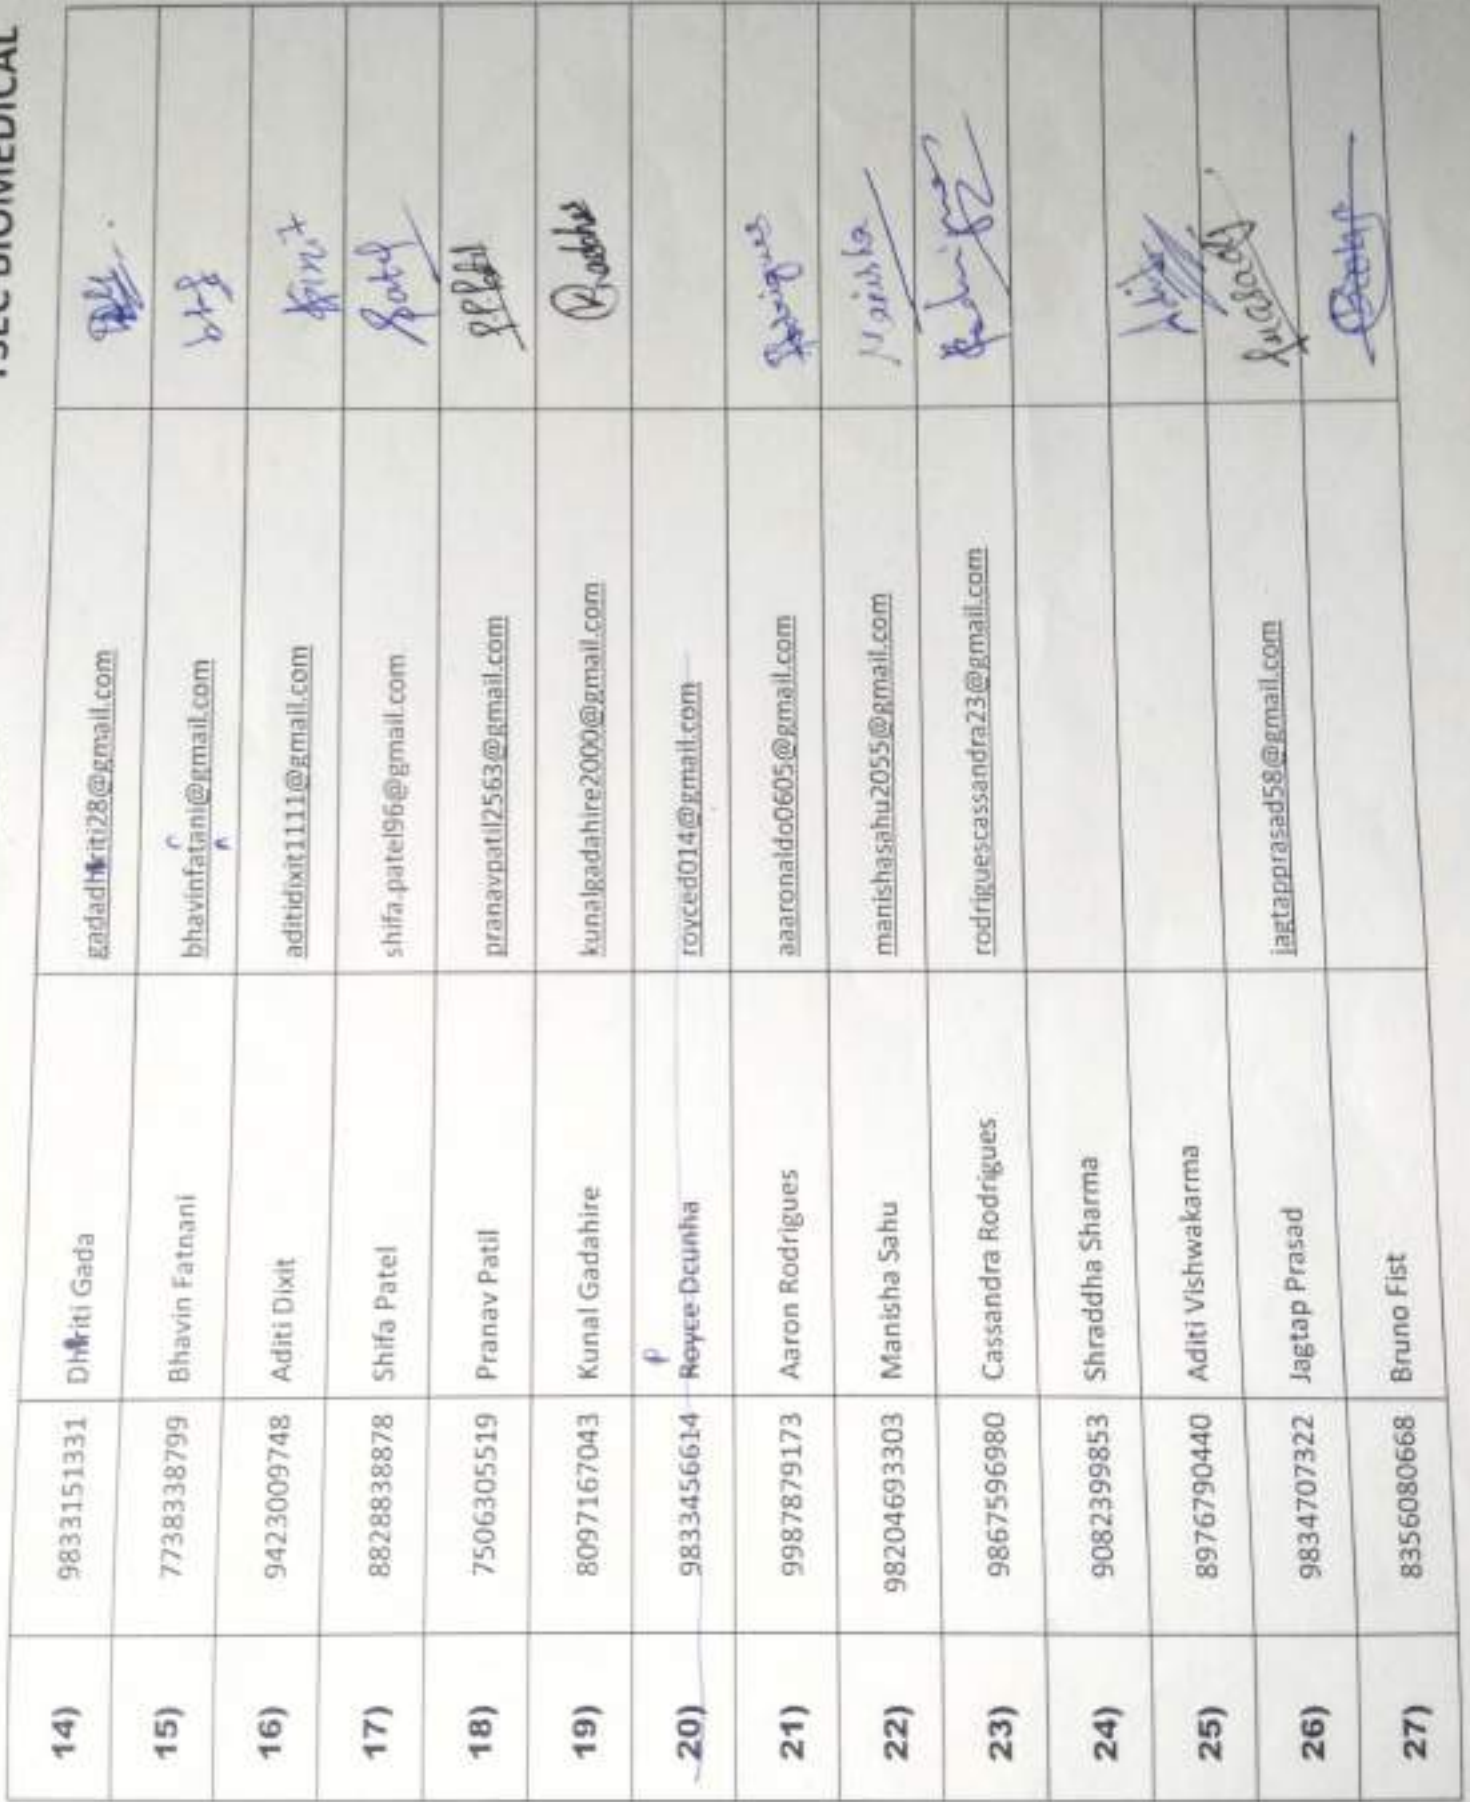 TSEC BIOMEDICAL
14) 9833151331 Dhriti Gada gadadhriti28@gmail.com
15) 7738338799 Bhavin Fatnani bhavinfatani@gmail.com n
16) 9423009748 Aditi Dixit aditidixit1111@gmail.com
17) 8828838878 Shifa Patel shifa.patel96@gmail.com
18) 7506305519 Pranav Patil pranavpatil2563@gmail.com
19) 8097167043 Kunal Gadahire kunalgadahire2000@gmail.com
20) 9833456614 Royce Dcunha royced014@gmail.com
21) 9987879173 Aaron Rodrigues aaaronaldo0605@gmail.com Rodrigues
22) 98204693303 Manisha Sahu manishasahu2055@gmail.com Manisha
23) 9867596980 Cassandra Rodrigues rodriguescassandra23@gmail.com
24) 9082399853 Shraddha Sharma
25) 8976790440 Aditi Vishwakarma
26) 9834707322 Jagtap Prasad jagtapprasad58@gmail.com
27) 8356080668 Bruno Fist